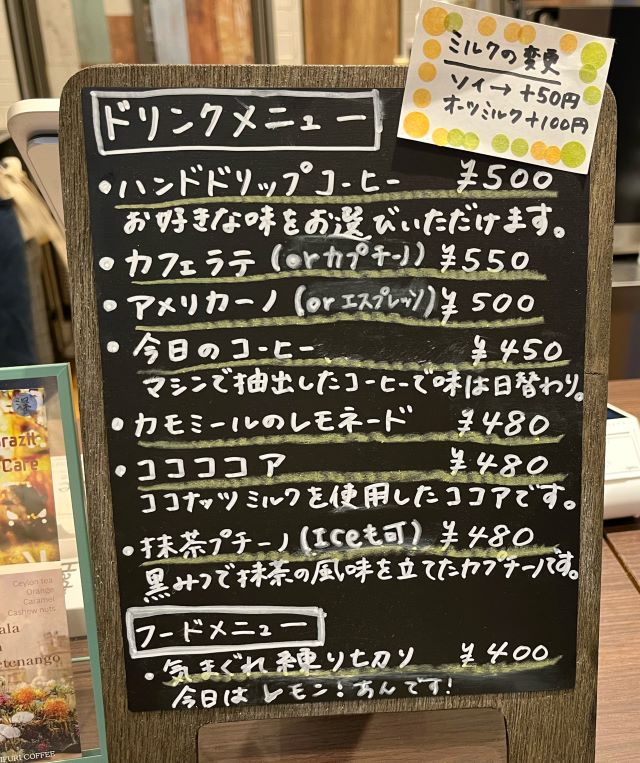 ミルクの変更
ソイ→ +50円
オーツミルク+100円
ドリンクメニュー
・ハンドドリップコーヒー ¥500
お好きな味をお選びいただけます。
・カフェラテ(orカプチーノ) ¥550
・アメリカーノ(orエスプレッソ) ¥500
・今日のコーヒー ¥450
マシンで抽出したコーヒーで味は日替わり。
・カモミールのレモネード ¥480
・ココココア ¥480
ココナッツミルクを使用したココアです。
・抹茶プチーノ(Iceも可) ¥480
黒みつで抹茶の風味を立てたカプチーノです。
フードメニュー
・気まぐれ練り切り ¥400
今日はレモン!あんです!
深
Care
Ceylon tea
Orange
Caramel
Cashew nuts
URI COFFEE